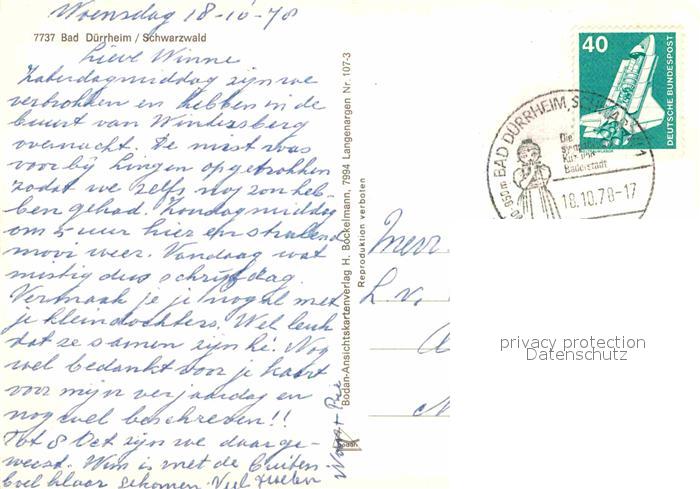 Woensdag 18-10-78
7737 Bad Dürrheim / Schwarzwald
Lieve Winne
Zaterdagmiddag zijn we
vertrokken en hebben in de
buurt van
overnacht. De mist was
voorbij Lingen opgetrokken
zodat we zelfs nog zon heb-
ben gehad. Zondagmiddag
om 5 uur hier en stralend
mooi weer. Vandaag wat
mistig dus schrijfdag.
Vermaak je je nogal met
je kleindochters. Wel leuk
dat ze samen zijn hè. Nog
wel bedankt voor je kaart
voor mijn verjaardag en
nog wel beschreven!!
Tot 8 Oct zijn we daar ge-
weest. Wim is met de
klaar gekomen. Veel
Bodan-Ansichtskartenverlag H. Bockelmann, 7994 Langenargen Nr. 107-3
Reproduktion verboten
bodan
40
DEUTSCHE BUNDESPOST
BAD DÜRRHEIM, 1
Die
Kur im
Bäderstadt
18.10.78-17
Mevr.
L.v.
privacy protection
Datenschutz